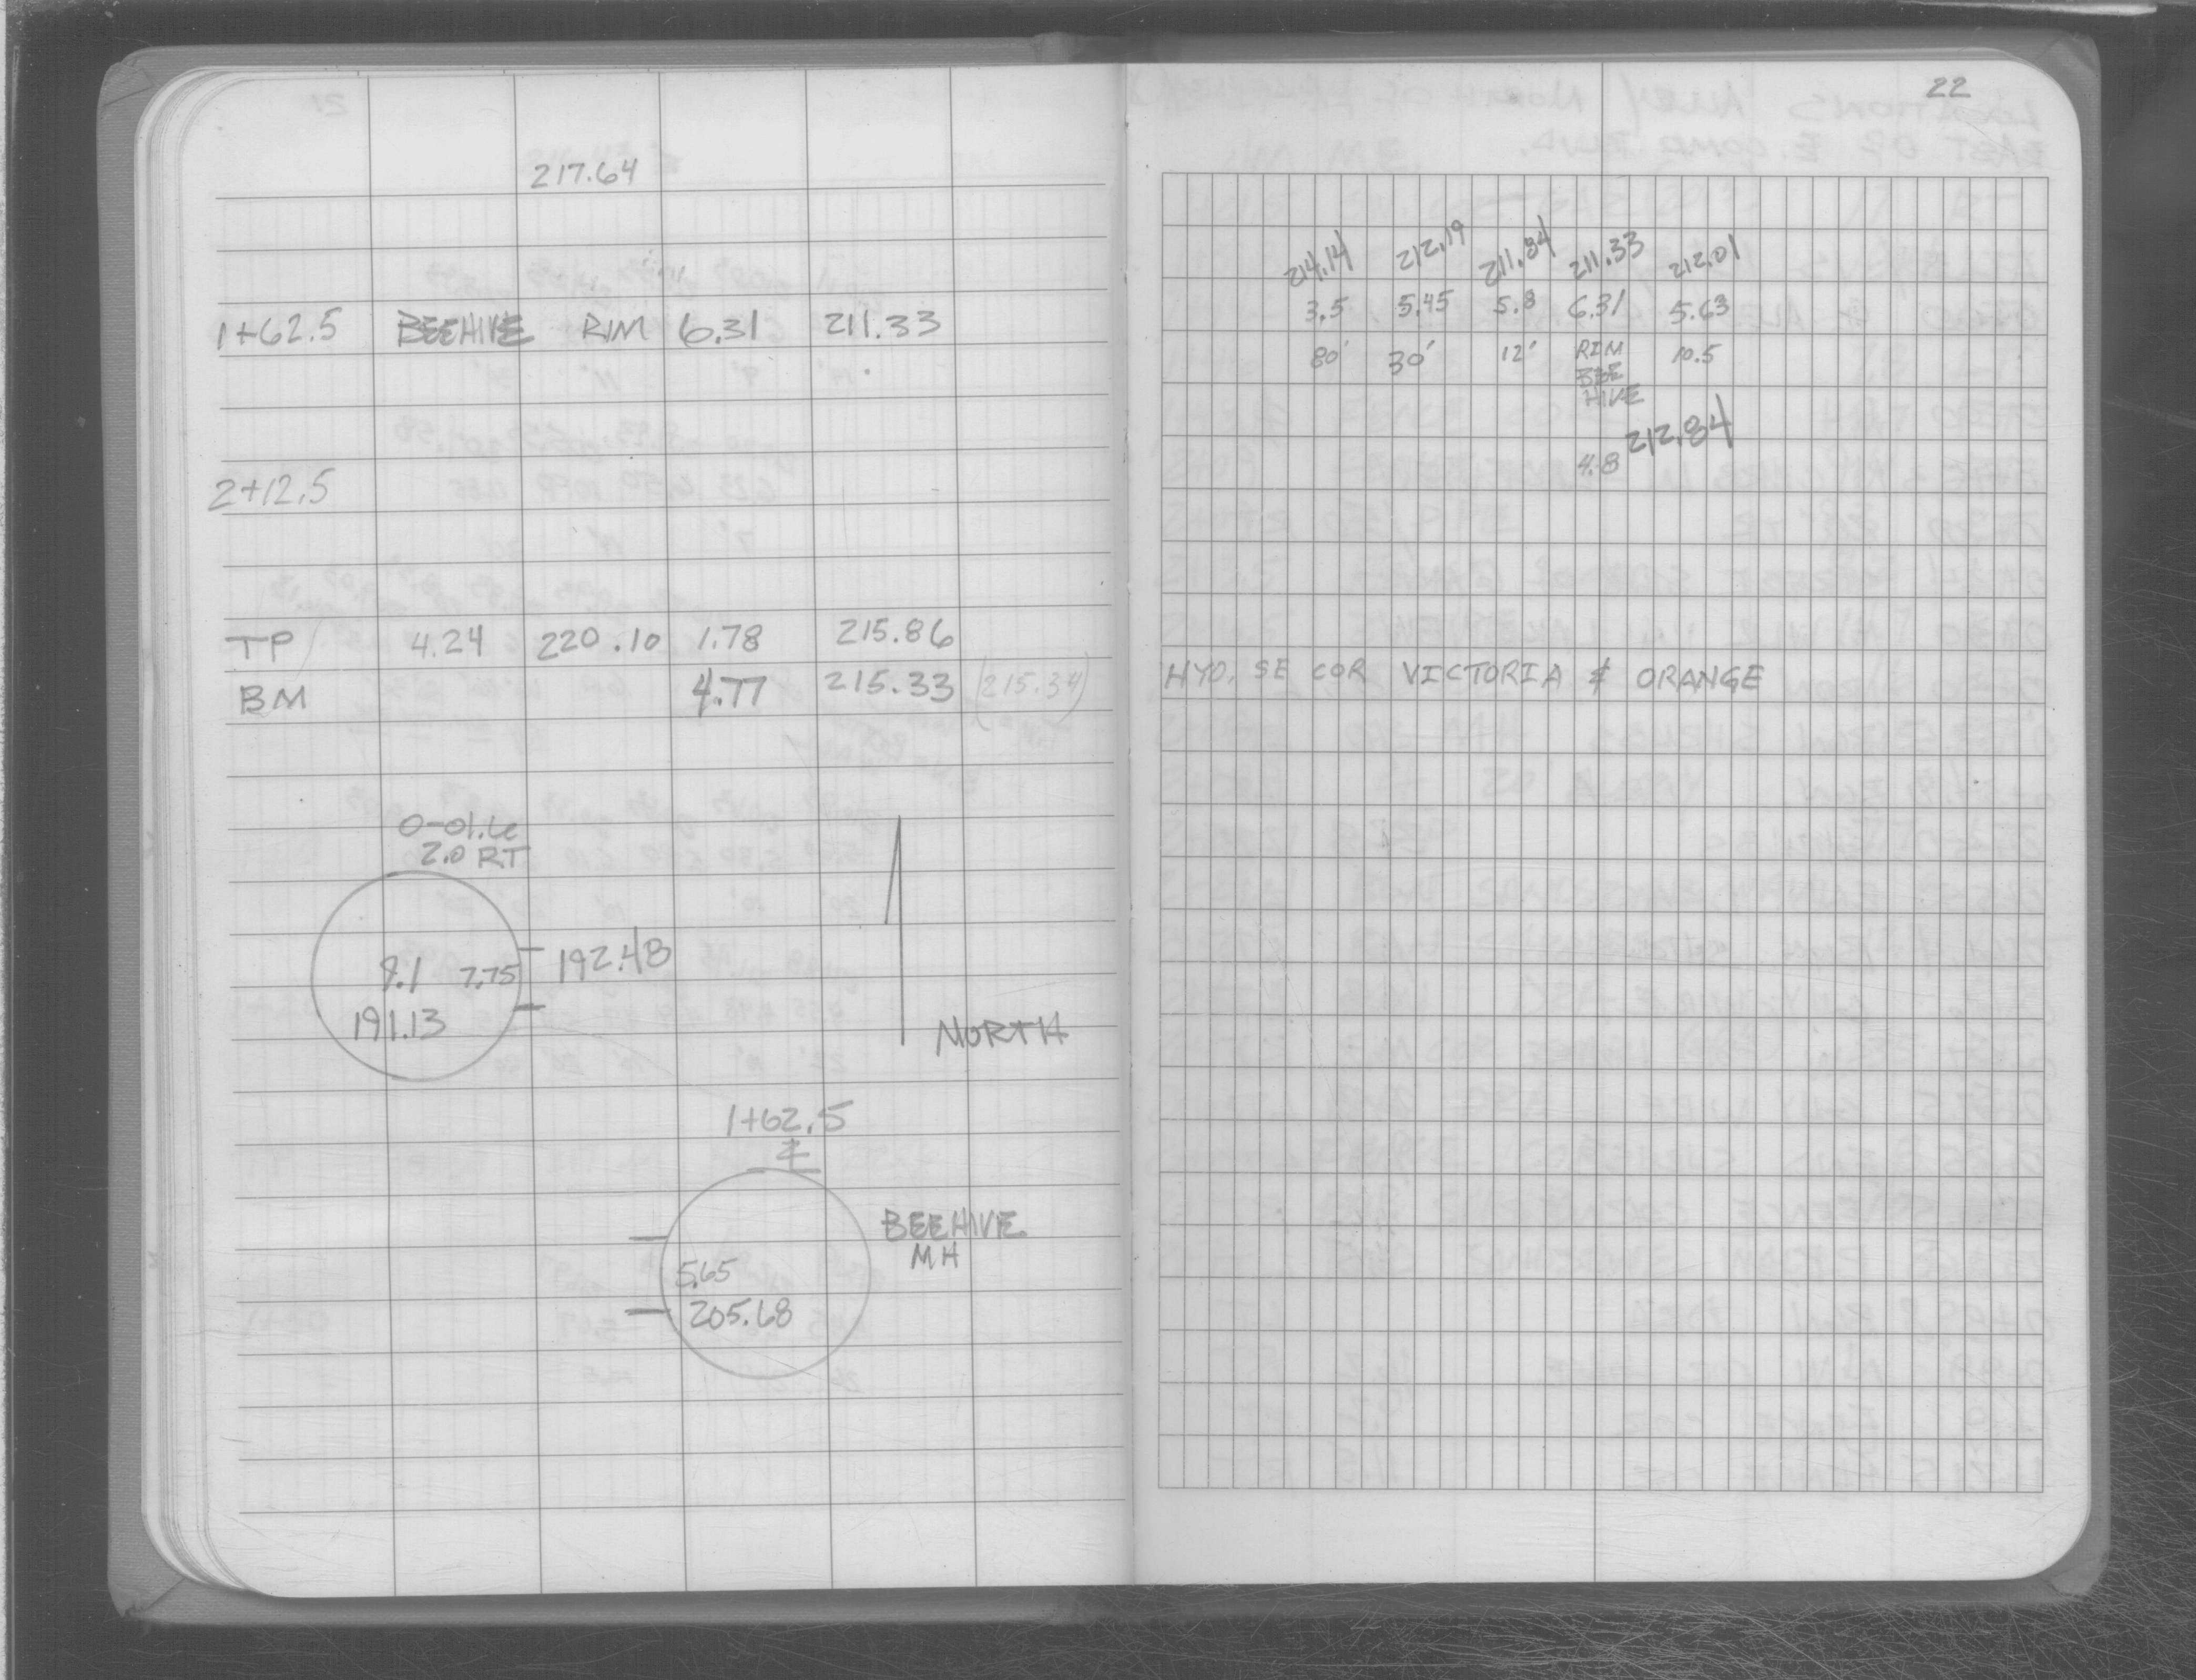 217.64
1+62.5 BEEHIVE RIM 6.31 211.33
2+12.5
TP 4.24 220.10 1.78 215.86
BM 4.77 215.33 (215.34)
2.0 RT
7.75 192.48
191.13
NORTH
1+62.5
BEEHIVE
MH
5.65
205.68
22
214.14 212.19 211.84 211.33 212.01
3.5 5.45 5.8 6.31 5.63
80' 30' 12' RIM 10.5
BEE
HIVE
212.84
4.8
HYD. SE COR VICTORIA & ORANGE